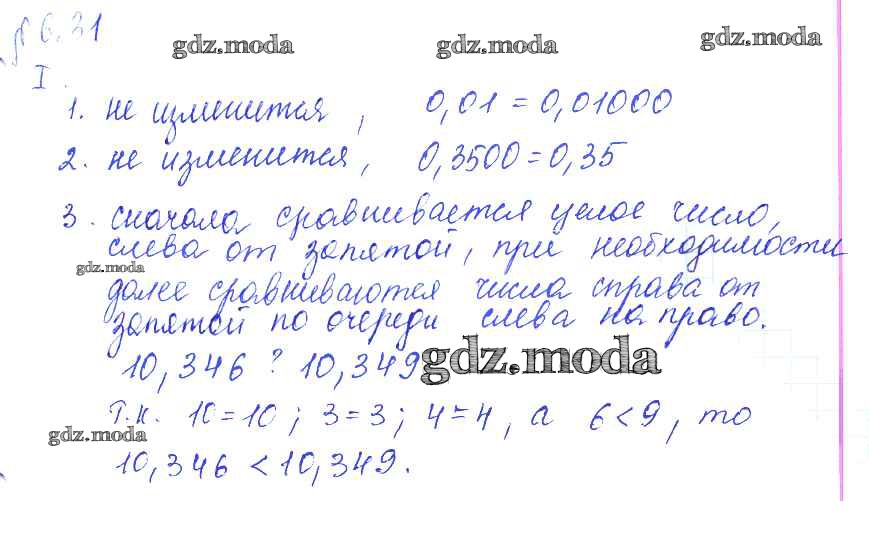 № 6.31
gdz.moda gdz.moda gdz.moda
I.
1. не изменится, 0,01 = 0,01000
2. не изменится, 0,3500 = 0,35
3. сначала сравнивается целое число,
слева от запятой, при необходимости
gdz.moda
далее сравниваются числа справа от
запятой по очереди слева на право.
10,346 ? 10,349
gdz.moda
Т.к. 10=10; 3=3; 4=4, а 6<9, то
gdz.moda
10,346 < 10,349.